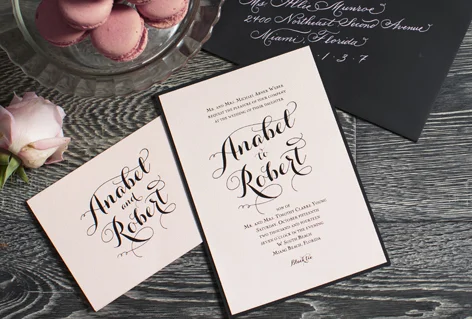 2400 Northeast Second Avenue
Miami, Florida
1 · 3 · 7
Mr. and Mrs. Michael Abner Weber
request the pleasure of your company
at the wedding of their daughter
Anabel
to
Robert
son of
Mr. and Mrs. Timothy Clarke Young
Saturday, October fifteenth
two thousand and fourteen
seven o'clock in the evening
W South Beach
Miami Beach, Florida
Black tie
Anabel
and
Robert